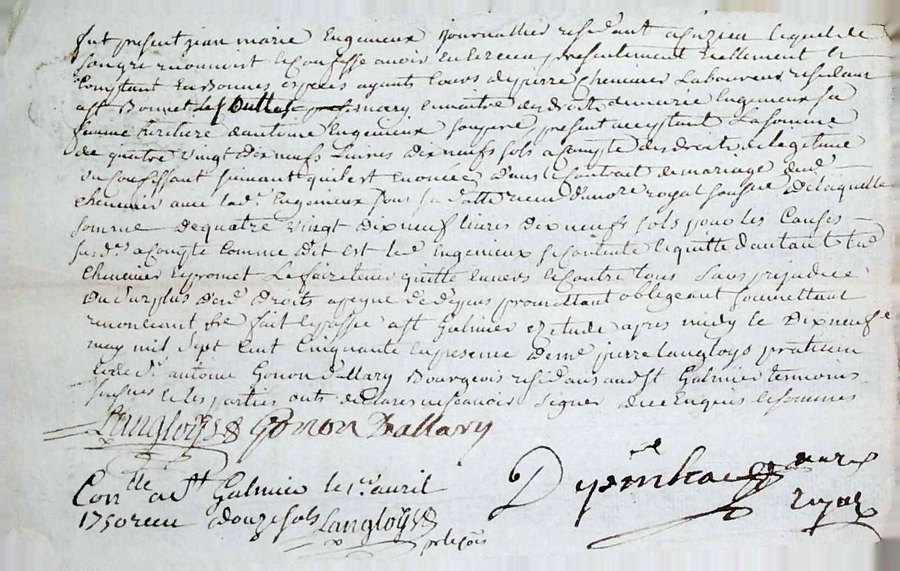 fut present jean marie Engenieux journallier residant a Cuzieu lequel de
son gre reconnoit et confesse avoir eu et receu presentement reallement et
comptant en bonnes especes ayants cours de pierre chemenier Laboureur residant
a st Bonnet les Oulles mary et maitre des droits de marie Engenieux sa
femme heritiere d'antoine Engenieux son pere present acceptant La somme
de quatre vingt dix neufs Livres dix neufs sols a compte des droits de legitime
suivant qu'il est enoncé dans le contrat de mariage dud
chemenier avec lad. Engenieux sous sa datte receu royal de laquelle
somme de quatre vingt dix neuf livres dix neufs sols pour les causes
susd. a compte comme dit est led ingenieux se contente et quitte d'autant led
Chemenier et promet Le faire tenir quitte envers et contre tous sans prejudice
du surplus desd droits a peyne de depens promettant obligeant soumettant
renonceant fait et passé a st Galmier etude apres midy le dix neufs
may mil sept cent cinquante en presence de me pierre Langloys praticien
et de sr antoine Gonon Dallary Bourgeois residans aud st Galmier temoins
et les parties ont declarés ne scavoir signer de ce Enquis et sommés
Langloys Gonon Dallary
Conlle a st Galmier le 1er avril
1750 receu douze sols Langloys
royal